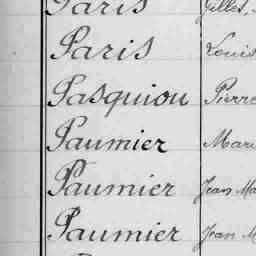 Paris Gilles,
Paris Louis
Pasquiou Pierre
Paumier Mari
Paumier Jean Ma
Paumier Jean M